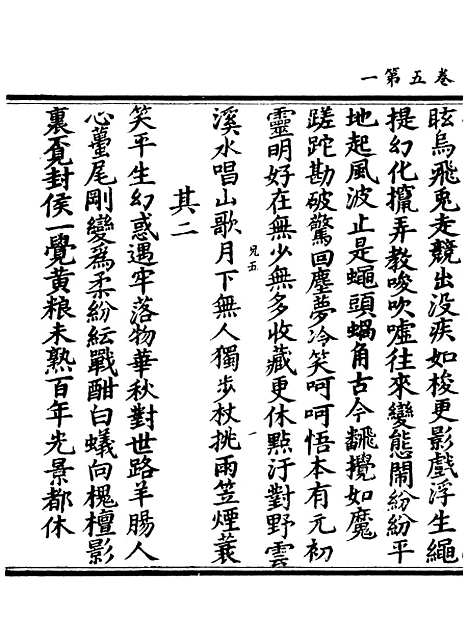 卷五第一
眩烏飛兎走競出没疾如梭更影戲浮生繩
提幻化攛弄教唆吹嘘往來變態鬧紛紛平
地起風波止是蠅頭蝸角古今飜攪如魔
蹉跎勘破驚回塵夢冷笑呵呵悟本有元初
靈明好在無少無多收藏更休點汙對野雲
溪水唱山歌月下無人獨步杖挑雨笠煙蓑
兄五
一
其二
笑平生幻惑遇牢落物華秋對世路羊腸人
心蠆尾剛變為柔紛紜戰酣白蟻向槐檀影
裏覔封侯一覺黄粮未熟百年光景都休